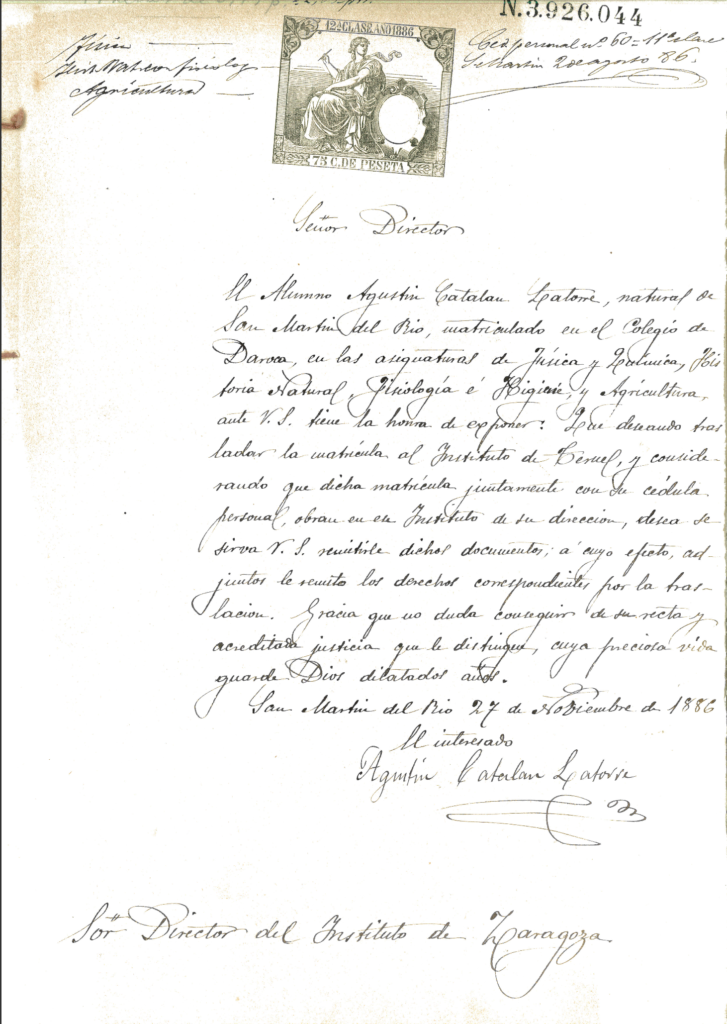 N.3.926.044
12ª CLASE AÑO 1886
75 C. DE PESETA
Física
Hist Nat con fisiolog
Agricultura
Ced personal nº 60 = 11ª clase
Sn Martin 2 de agosto 86.
Señor Director
El Alumno Agustin Catalan Latorre, natural de
San Martin del Rio, matriculado en el Colegio de
Daroca, en las asignaturas de Física y Química, His
toria Natural, Fisiología é Higiene, y Agricultura,
ante V. S. tiene la honra de exponer: Que deseando tras
ladar la matrícula al Instituto de Teruel, y conside-
rando que dicha matrícula juntamente con su cédula
personal, obran en ese Instituto de su direccion, desea se
sirva V. S. remitirle dichos documentos; á cuyo efecto, ad-
juntos le remito los derechos correspondientes por la tras-
lacion. Gracia que no duda conseguir de su recta y
acreditada justicia que le distingue, cuya preciosa vida
guarde Dios dilatados años.
San Martin del Rio 27 de Noviembre de 1886
El interesado
Agustín Catalan Latorre
Sor Director del Instituto de Zaragoza